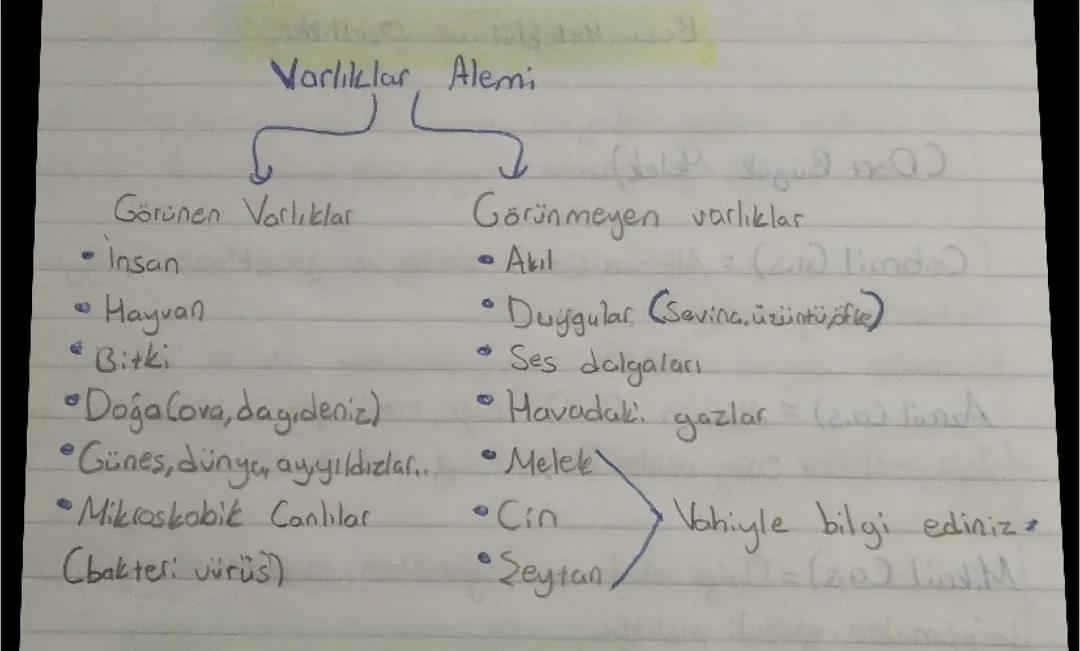 Varlıklar Alemi
Görünen Varlıklar
• İnsan
• Hayvan
• Bitki
• Doğa (ova, dag, deniz)
• Günes, dünya, ay, yıldızlar..
• Mikroskobik Canlılar
(bakteri vürüs)
Görünmeyen varlıklar
• Akıl
• Duygular (Sevinc, üzüntü, öfke)
• Ses dalgaları
• Havadaki gazlar
• Melek
• Cin
• Şeytan
Vahiyle bilgi ediniz.